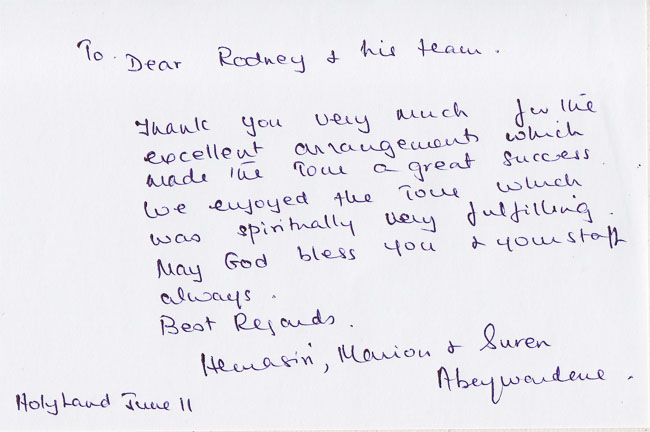 To. Dear Rodney & his team.
Thank you very much for the
excellent arrangements which
made the Tour a great success.
We enjoyed the Tour which
was spiritually very fulfilling.
May God bless you & your staff
always.
Best Regards.
Hemasiri, Marion & Suren
Abeywardene.
Holyland June 11